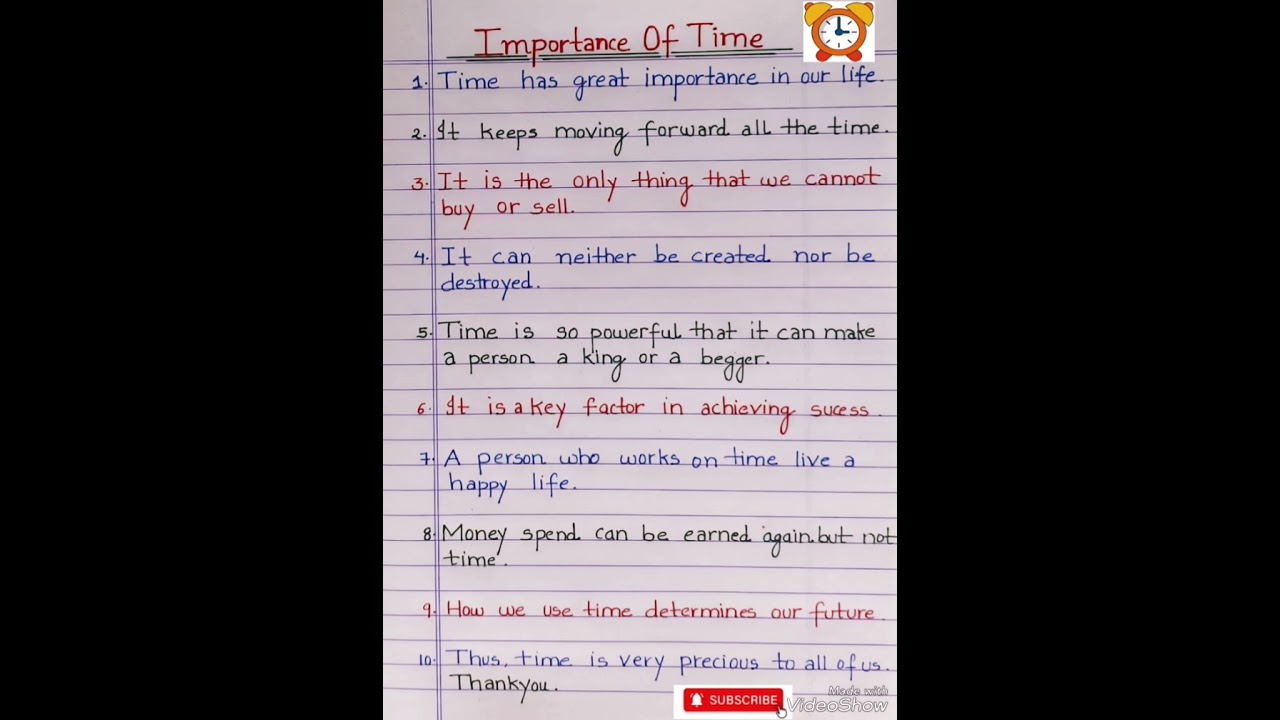 Importance Of Time
1. Time has great importance in our life.
2. It keeps moving forward all the time.
3. It is the only thing that we cannot
buy or sell.
4. It can neither be created nor be
destroyed.
5. Time is so powerful that it can make
a person a king or a begger.
6. It is a key factor in achieving sucess.
7. A person who works on time live a
happy life.
8. Money spend can be earned again but not
time.
9. How we use time determines our future.
10. Thus, time is very precious to all of us.
Thankyou.
SUBSCRIBE
Made with
VideoShow